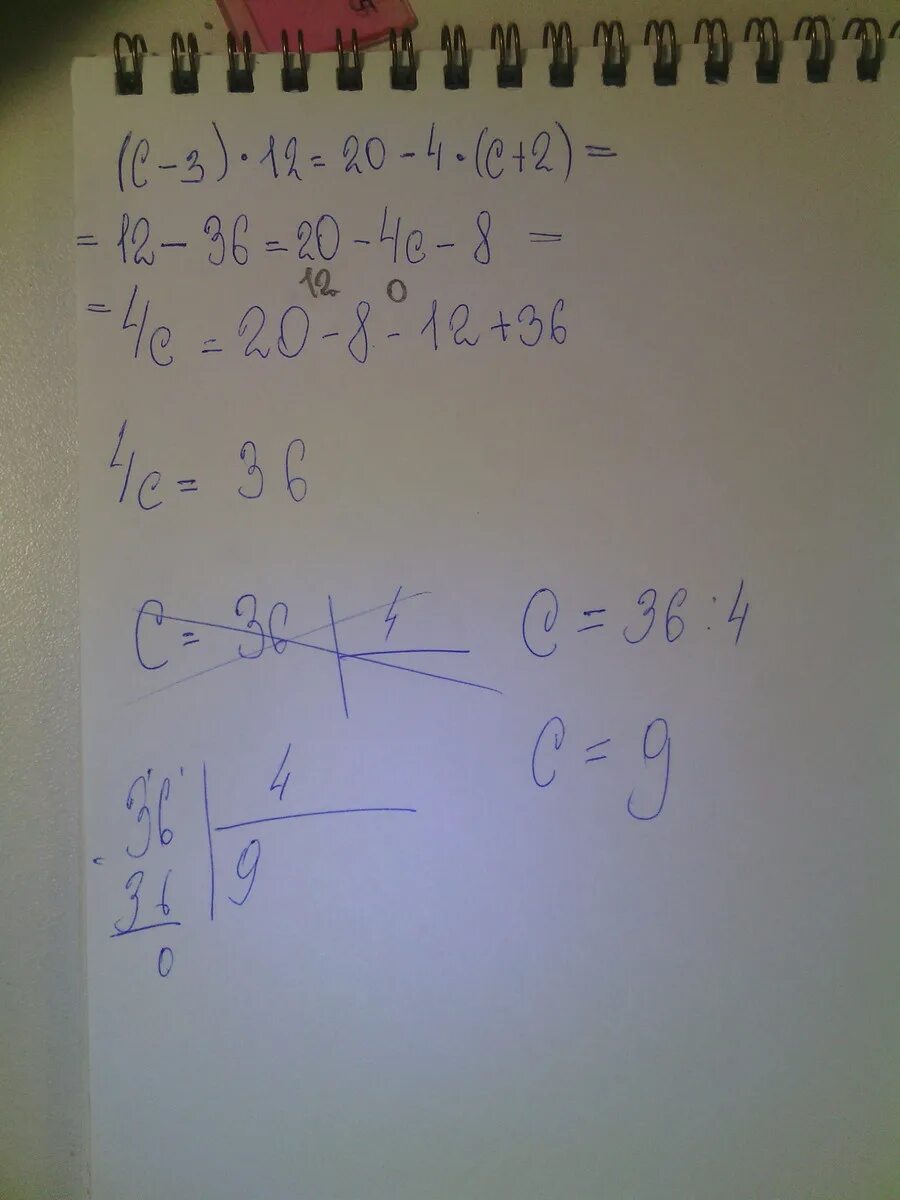 (c-3)·12=20-4·(c+2)=
=12-36=20-4c-8 =
12 0
=4c=20-8-12+36
4c=36
c=36 4
c=36:4
c=9
36 4
36 9
0